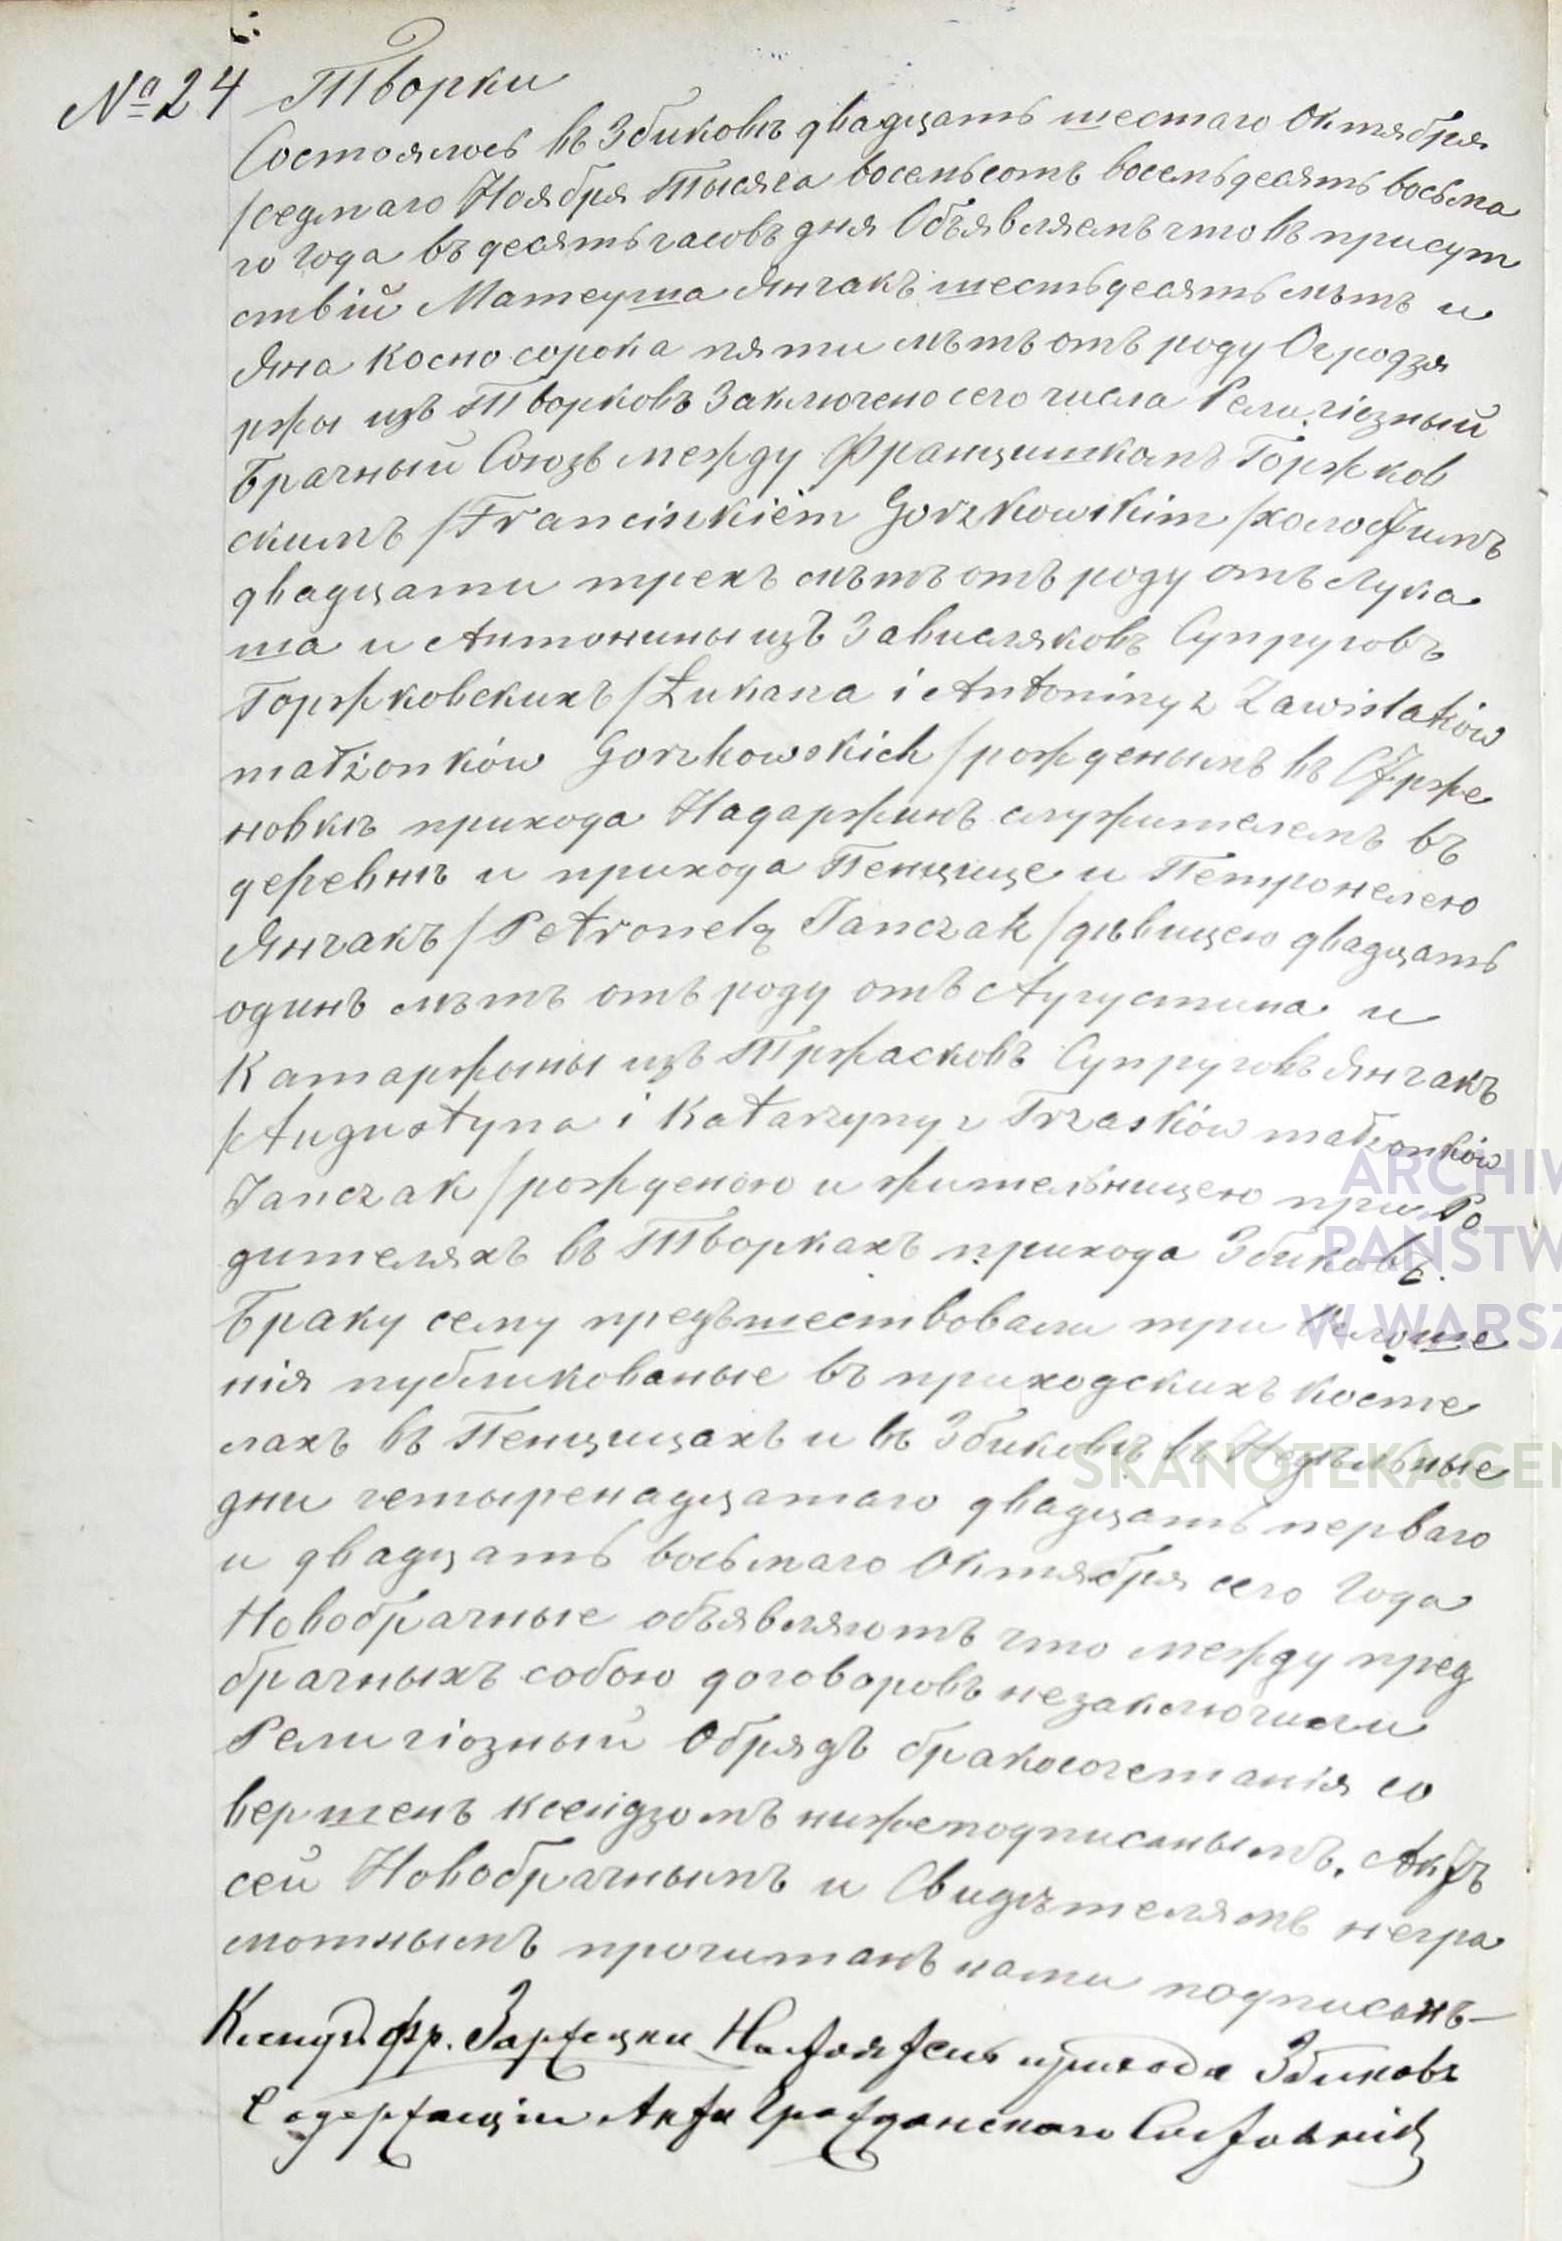 № 24 Творки
Состоялось въ Збиковѣ двадцать шестаго Октября
/седмаго Ноября Тысяча восемьсотъ восемьдесять восьма
го года въ десять часовъ дня Объявляемъ что въ присут
ствій Матеуша Янчакъ шестьдесять лѣтъ и
Яна Косно сорока пяти лѣтъ отъ роду Огродзя
ржы изъ Творковъ Заключено сего числа Религіозный
Брачный Союзъ между Францишкамъ Горжков
скимъ /Francinkiem Gorzkowskim/ холостимъ
двадцати трехъ лѣтъ отъ роду отъ Лука
ша и Антонины изъ Зависляковъ Супруговъ
Горжковскихъ /Łukasza i Antoniny z Zawislaków
małżonków Gorzkowskich/ рожденымъ въ Стрже
новкѣ прихода Надаржинъ служителемъ въ
деревнѣ и прихода Пенцице и Петронелею
Янчакъ /Petronelą Janczak/ дѣвицею двадцать
одинъ лѣтъ отъ роду отъ Аугустина и
Катаржыны изъ Тржасковъ Супруговъ Янчакъ
/Augustyna i Katarzyny z Trzasków małżonków
Janczak/ рожденою и жительницею при Ро
дителяхъ въ Творкахъ прихода Збиковъ.
Браку сему предъшествовали три Оглоше
нія публикованые въ приходскихъ косте
лахъ въ Пенцицахъ и въ Збиковѣ въ Недѣльные
дни четыренадцатаго двадцать перваго
и двадцать восьмаго Октября сего Года
Новобрачные объявляютъ что между пред
брачныхъ собою договоровъ незаключили
Религіозный Обрядъ бракосочетанія со
вершенъ ксендзомъ нижеподписанымъ. Актъ
сей Новобрачнымъ и Свидѣтелямъ негра
мотнымъ прочитанъ нами подписанъ—
Ксендзъ Фр. Заржецки Настоятель прихода Збиковъ
Содержащій Акты Гражданскаго Состоянія